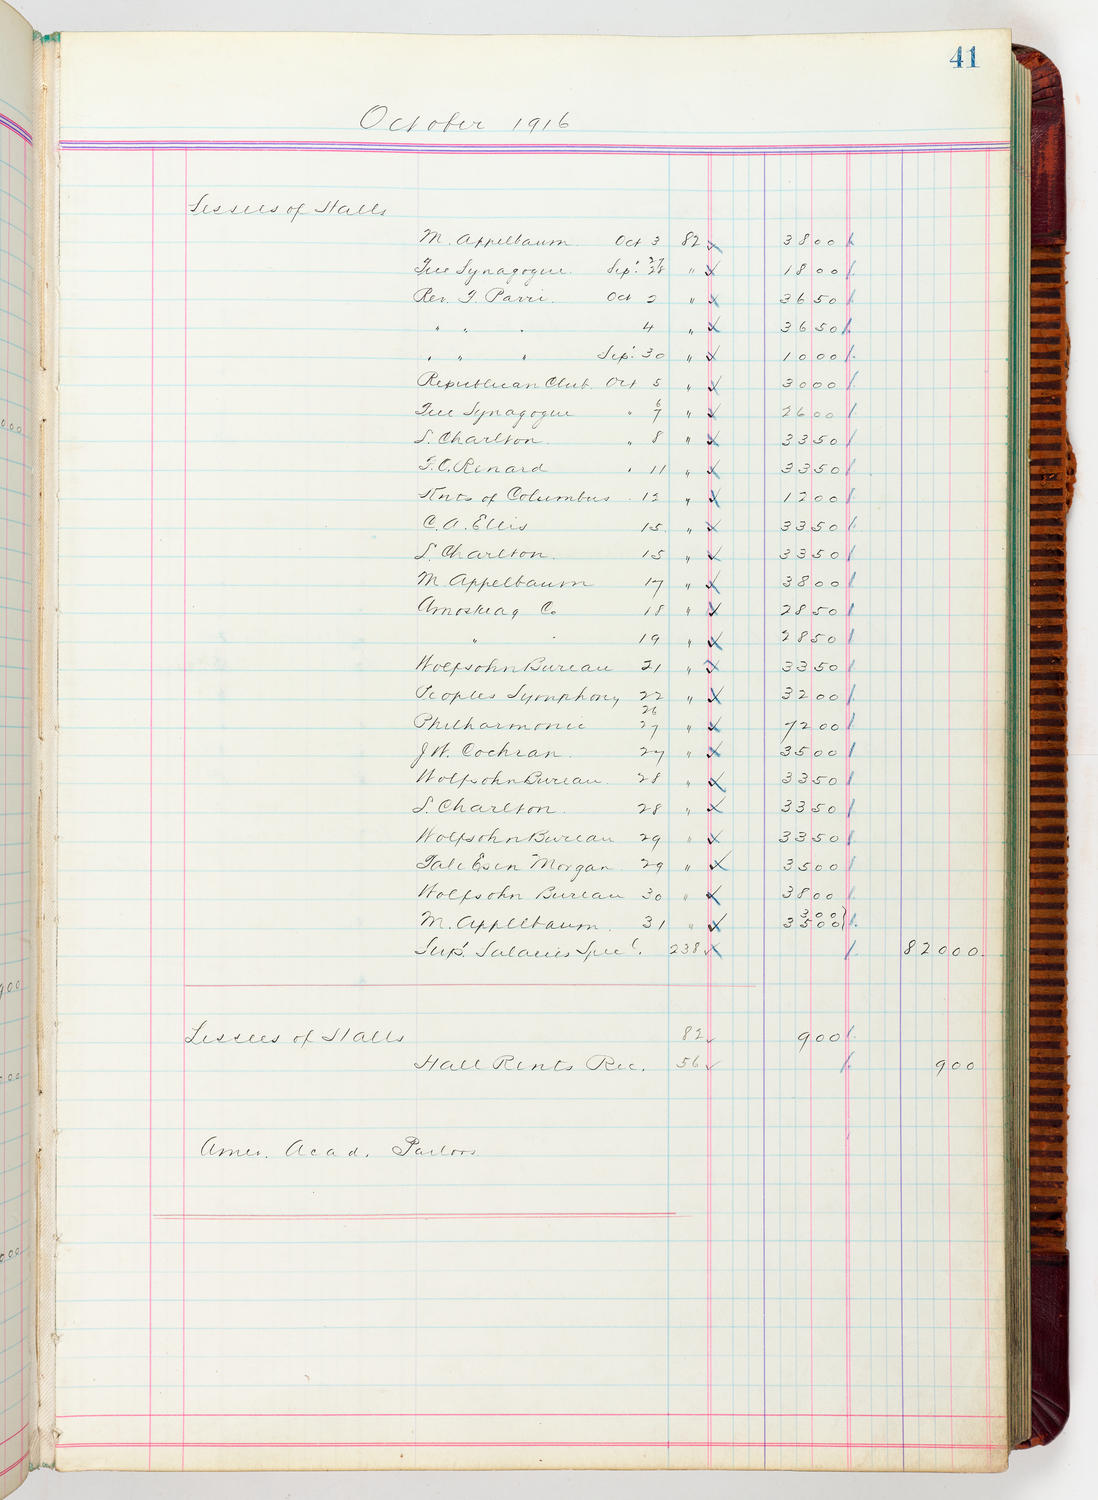 41
October 1916
Lessees of Halls
M. Appelbaum Oct 3 82 38 00
Free Synagogue Sep. 27 28 " 18 00
Rev. F. Oct 2 " 36 50
" " " 4 " 36 50
" " " Sep. 30 " 10 00
Republican Club Oct 5 " 30 00
Free Synagogue " 6 7 " 26 00
L. Charlton " 8 " 33 50
F. C. Renard " 11 " 33 50
Knts of Columbus 12 " 12 00
C. A. Ellis 15 " 33 50
L. Charlton 15 " 33 50
M. Appelbaum 17 " 38 00
Amoskeag Co 18 " 28 50
" " 19 " 28 50
Wolfsohn Bureau 21 " 33 50
Peoples Symphony 22 " 32 00
Philharmonic 26 27 " 72 00
J. W. Cochran 27 " 35 00
Wolfsohn Bureau 28 " 33 50
L. Charlton 28 " 33 50
Wolfsohn Bureau 29 " 33 50
Tali Esen Morgan 29 " 35 00
Wolfsohn Bureau 30 " 38 00
M. Applebaum 31 " 3 00 35 00
Sup. Salaries Spec'l. 238 820 00
Lessees of Halls 82 9 00
Hall Rents Rec. 56 9 00
Amer. Acad. Parlors